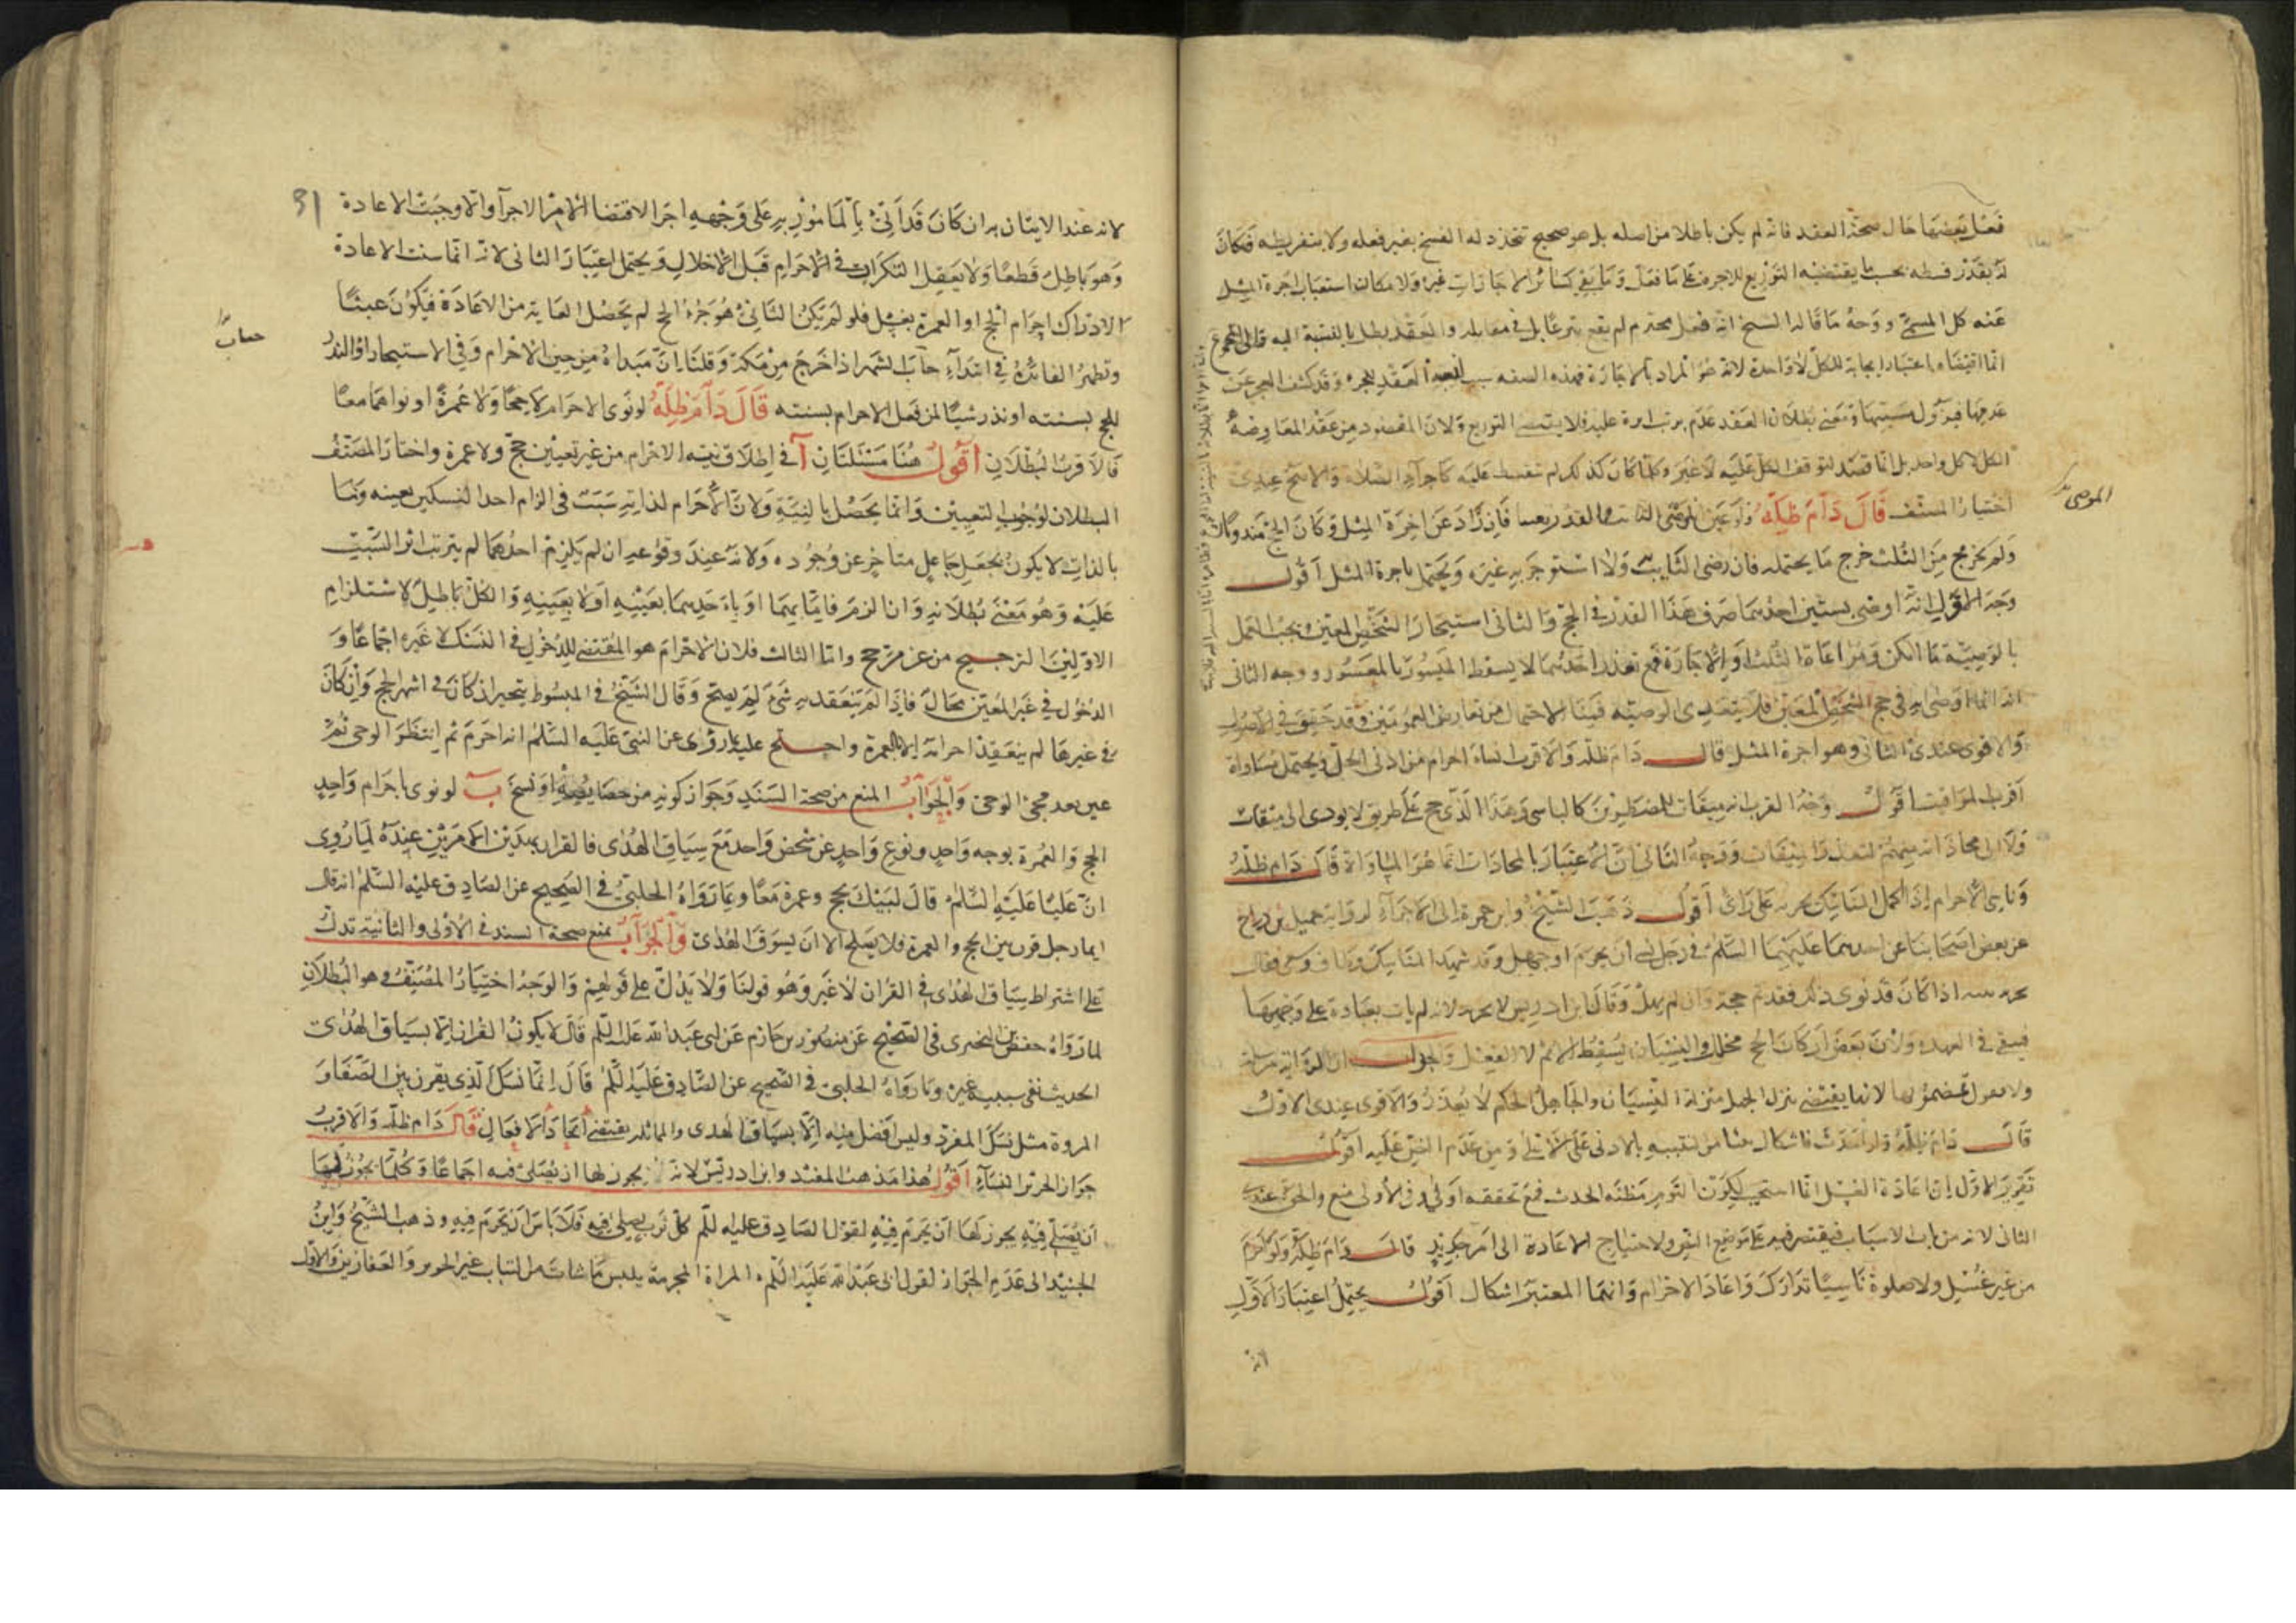 فعل بعضها حال صحة العقد فانه لم يكن باطلا من اصله بل هو صحيح تجدد له الفسخ بغير فعله ولا بتفريطه فكان
له بقدر قسطه بحسب ما يقتضيه التوزيع للاجرة على ما فعل وما بقي كسائر الاجازات غيره ولامكان استيعاب اجرة المثل
عنه كل المسمى ووجه ما قاله الشيخ انه فعل محترم لم يقع تبرعا بل في مقابله والعقد بطل بالنسبة اليه قال المجموع
انما اقتضاه اعتبار ايجابه للكل لا واحدة لانه هو المراد بالاجارة فهذه الصفه سبب العقد للجزء وقد كشف العجز عن
عدمها فيزول سببيتها ومعنى بطلان العقد عدم ترتب اثره عليه فلا يقتضي التوزيع ولان المقصود من عقد المعاوضة
الكل لا كل واحد بل انما قصد لتوقف الكل عليه لا غير وكلما كان كذلك لم تقسط عليه كاجزاء الصلاة والاصح عندي
اختيار المصنف قال دام ظله ولو عين الموصي النائب والقدر تعينا فان زاد عن اجرة المثل وكان الحج مندوبا
ولم يخرج من الثلث خرج ما يحتمله فان رضى النائب به والا استوجر به غيره ويحتمل باجرة المثل اقول
وجه الاول انه اوصى بشيئين احدهما صرف هذا القدر في الحج والثاني استيجار الشخص المعين فيجب العمل
بالوصية ما امكن ومراعاة الثلث او الاجازة فمع تعذر احدهما لا يسقط الميسور بالمعسور ووجه الثاني
انه انما اوصى به في حج الشخص المعين فلا يتعدى الوصية فبنا الاحتمال من تعارض العمومين وقد حقق في الاصول
والاقوى عندي الثاني وهو اجرة المثل قال دام ظله والاقرب انشاء احرام من ادنى الحل ويحتمل مساواة
اقرب المواقيت اقول وجه القرب انه ميقات للمضطرين كالناسي وهذا الذي حج على طريق لا يودى الى ميقات
ولا الى محاذاته منهم لتعذر الميقات ووجه الثاني ان الاعتبار بالمحاذات انما هو المساواة قال دام ظله
وناسي الاحرام اذا اكمل المناسك يجزيه على راى اقول ذهب الشيخ وابن حمزة الى الاجزاء لرواية جميل بن دراج
عن بعض اصحابنا عن احدهما عليهما السلم في رجل نسي ان يحرم او جهل وقد شهد المناسك وطاف وسعى فقال
يجزيه نيته اذا كان قد نوى ذلك فقد تم حجه وان لم يهل وقال ابن ادريس لا يجزيه لانه لم يات بعبادة على وجهها
فيبقى في العهدة ولان بعض اركان الحج مختل والنسيان يسقط الاثم لا الفعل والجواب ان الرواية مرسلة
ولا معول بمضمونها لانها يقتضي تنزل الجهل منزلة النسيان والجاهل بالحكم لا يعذر والاقوى عندي الاول
قال دام ظله ولو احدث فاشكال ينشا من التنبيه بالادنى على الاعلى ومن عدم النص عليه اقول
تقرير الاول ان اعادة الغسل انما استحب لكون النوم مظنة الحدث فمع تحققه اولى وفي الاولى منع والحق عندي
الثاني لانه من باب الاسباب فيقتصر فيه على موضع النص ولاحتياج الاعادة الى امر جديد قال دام ظله ولو احرم
من غير غسل ولا صلوة ناسيا تدارك واعاد الاحرام وايهما المعتبر اشكال اقول يحتمل اعتبار الاول
لانه
الموصى
31
لانه عند الاتيان به ان كان قد اتى بالمامور به على وجهه اجزا لاقتضا الامر الاجزا والا وجبت الاعادة
وهو باطل قطعا ولا يعقل التكرار في الاحرام قبل الاحلال ويحتمل اعتبار الثاني لانه انما سنت الاعادة
لادراك احرام الحج او العمرة بغسل فلو لم يكن الثاني هو جزء الحج لم يحصل الغاية من الاعادة فيكون عبثا
وتظهر الفائدة في ابتداء حساب الشهر اذا خرج من مكة وقلنا ان مبداه من حين الاحرام وفي الاستيجار او النذر
للحج بسنته او نذر شيئا لمن فعل الاحرام بسنته قال دام ظله لو نوى الاحرام لا حجا ولا عمرة او نواهما معا
فالاقرب البطلان اقول هنا مسئلتان آ في اطلاق نية الاحرام من غير تعيين حج ولا عمرة واختار المصنف
البطلان لوجوب التعيين وانما يحصل بالنية ولان الاحرام لذاته سبب في الزام احد النسكين بعينه وما
بالذات لا يكون بجعل جاعل متاخر عن وجوده ولانه عند وقوعه ان لم يلزم احدهما لم يترتب اثر السبب
عليه وهو معنى بطلانه وان لزم فاما بهما او باحدهما بعينه او لا بعينه والكل باطل لاستلزام
الاولين الترجيح من غير مرجح واما الثالث فلان الاحرام هو المقتضي للدخول في النسك لا غيره اجماعا و
الدخول في غير المعين محال فاذا لم ينعقد به شئ لم يصح وقال الشيخ في المبسوط يتخير ان كان في اشهر الحج وان كان
في غيرها لم ينعقد احرامه الا بالعمرة واحتج عليه بما روى عن النبي عليه السلم انه احرم ثم انتظر الوحى ثم
عين بعد مجئ الوحى والجواب المنع من صحة السند وجواز كونه من خصايصه او نسخ ب لو نوى باحرام واحد
الحج والعمرة بوجه واحد ونوع واحد عن شخص واحد مع سياق الهدى فالقران بهذين الامرين عنده لما روى
ان عليا عليه السلام قال لبيك بحج وعمرة معا وبما رواه الحلبي في الصحيح عن الصادق عليه السلم انه قال
ايما رجل قرن بين الحج والعمرة فلا يصلح الا ان يسوق الهدى والجواب بمنع صحة السند في الاولى والثانية تدل
على اشتراط سياق الهدى في القران لا غير وهو قولنا ولا يدل على قولهم والوجه اختيار المصنف وهو البطلان
لما رواه حفص بن البختري في الصحيح عن منصور بن حازم عن ابي عبد الله عليه السلم قال لا يكون القران الا بسياق الهدى
الحديث نفى سببية غيره وما رواه الحلبي في الصحيح عن الصادق عليه السلم قال انما نسك الذي يقرن بين الصفا و
المروة مثل نسك المفرد وليس افضل منه الا بسياق الهدى والمماثلة يقتضي اتحاد الافعال قال دام ظله والاقرب
جواز الحرير للنساء اقول هذا مذهب المفيد وابن ادريس لانه يجوز لها ان تصلى فيه اجماعا وكلما يجوز لها
ان تصلى فيه يجوز لها ان تحرم فيه لقول الصادق عليه السلم كل ثوب يصلى فيه فلا باس ان تحرم فيه وذهب الشيخ وابن
الجنيد الى عدم الجواز لقول ابي عبد الله عليه السلم المراة المحرمة يلبس ما شاءت من الثياب غير الحرير والقفازين والاول
حساب